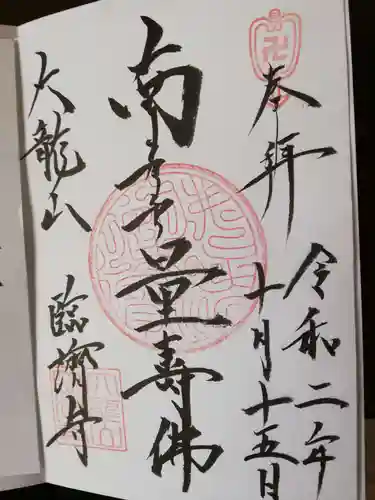 奉拝
令和二年
十月十五日
南無量壽佛
大龍山
臨濟寺